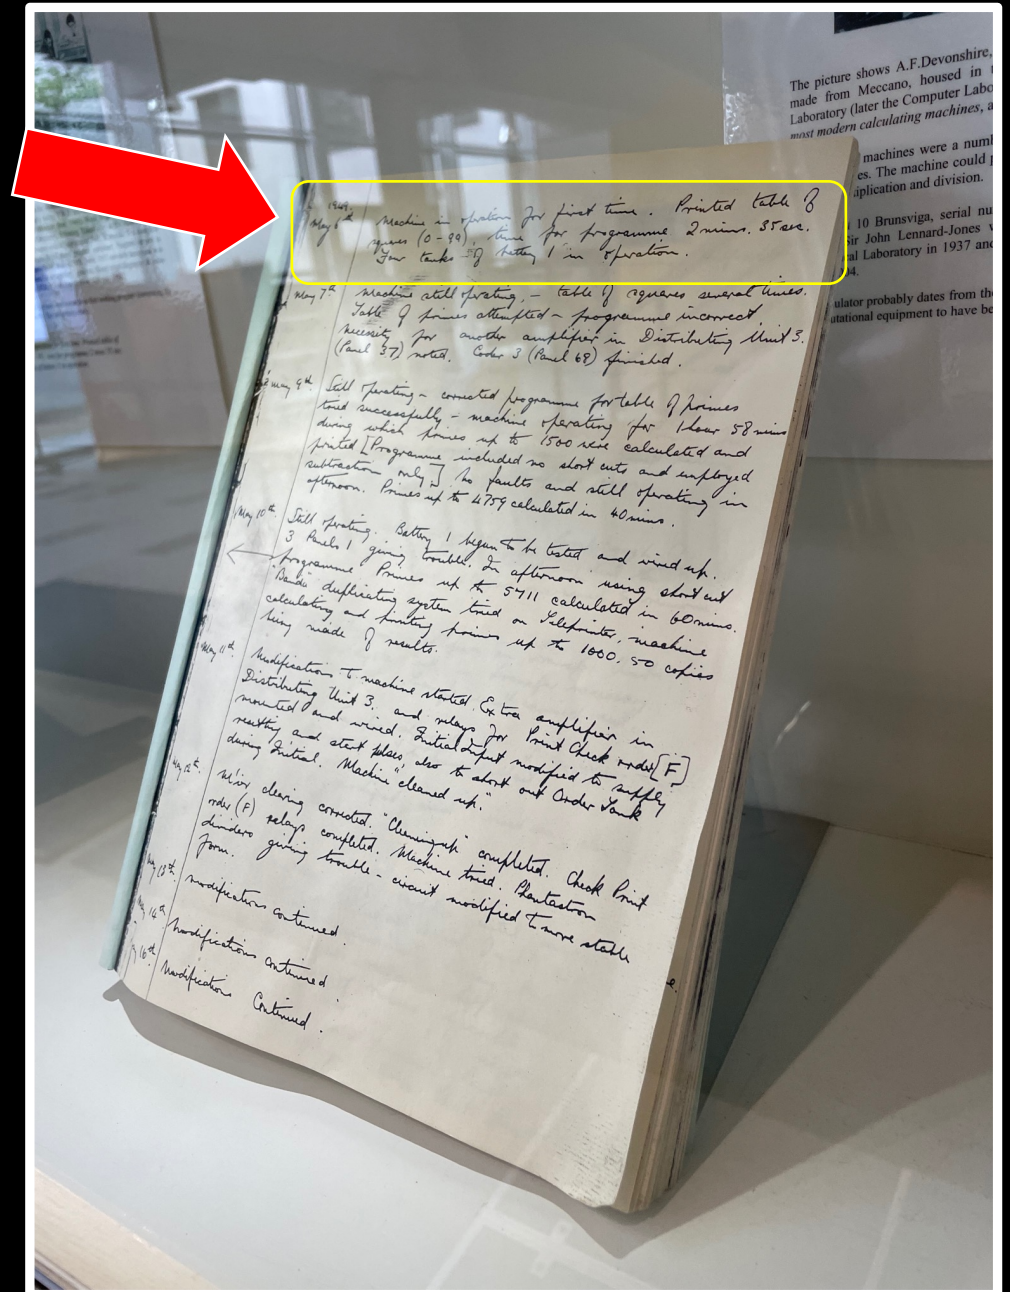 The picture shows A.F.Devonshire,
made from Meccano, housed in
Laboratory (later the Computer Labo
most modern calculating machines, a
machines were a numb
es. The machine could
tiplication and division.
10 Brunsviga, serial nu
Sir John Lennard-Jones
al Laboratory in 1937 and
4.
ulator probably dates from the
utational equipment to have be
1949.
May 6th Machine in operation for first time. Printed table of
squares (0-99), time for programme 2 mins. 35 sec.
Four tanks of battery 1 in operation.
May 7th Machine still operating, - table of squares several times.
Table of primes attempted - programme incorrect
necessity for another amplifier in Distributing Unit 3.
(Panel 37) noted. Coder 3 (Panel 68) finished.
May 9th Still operating - corrected programme for table of primes
tried successfully - machine operating for 1 hour 58 mins
during which primes up to 1500 were calculated and
printed [Programme included no short cuts and employed
subtraction only] No faults and still operating in
afternoon. Primes up to 4759 calculated in 40 mins.
May 10th Still operating. Battery 1 began to be tested and wired up.
3 Panels 1 giving trouble. In afternoon using short cut
programme Primes up to 5711 calculated in 60 mins.
"Banda" duplicating system tried on Teleprinter, machine
calculating and printing primes up to 1000. 50 copies
being made of results.
May 11th Modifications to machine started. Extra amplifier in
Distributing Unit 3. and relays for Print Check order [F]
mounted and wired. Initial Input modified to supply
resetting and start pulses, also to short out Order Tank
during Initial. Machine "cleaned up".
May 12th clearing corrected. "Cleaning up" completed. Check Print
order (F) relays completed. Machine tried. Phantastron
dividers giving trouble - circuit modified to more stable
form.
May 13th Modifications continued.
May 14th Modifications continued.
16th Modifications Continued.